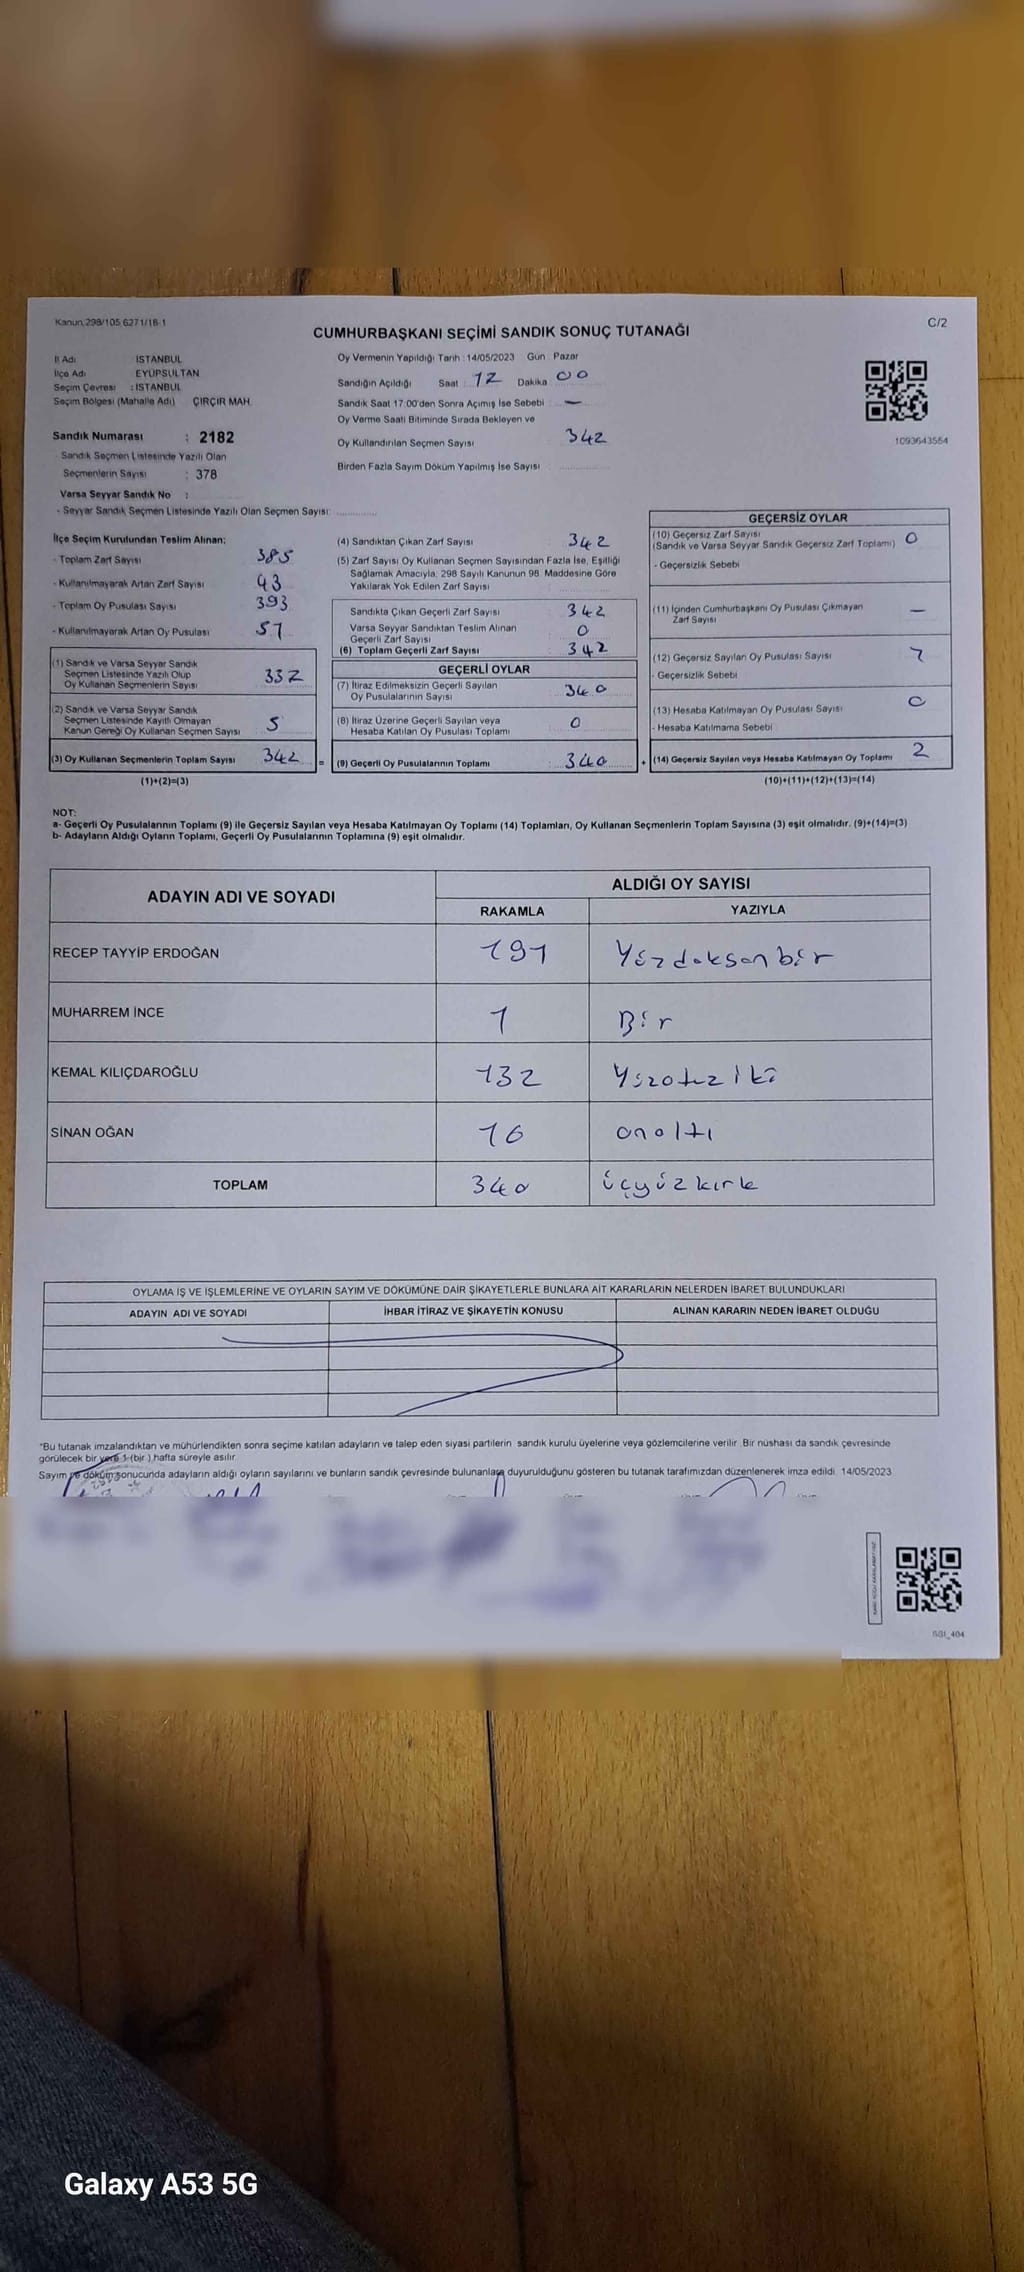 Kanun,298/105 6271/18-1
C/2
CUMHURBAŞKANI SEÇİMİ SANDIK SONUÇ TUTANAĞI
İl Adı İSTANBUL
İlçe Adı EYÜPSULTAN
Seçim Çevresi : İSTANBUL
Seçim Bölgesi (Mahalle Adı) ÇIRÇIR MAH.
Sandık Numarası : 2182
Sandık Seçmen Listesinde Yazılı Olan
Seçmenlerin Sayısı : 378
Varsa Seyyar Sandık No :
- Seyyar Sandık Seçmen Listesinde Yazılı Olan Seçmen Sayısı: ............
Oy Vermenin Yapıldığı Tarih : 14/05/2023 Gün Pazar
Sandığın Açıldığı Saat 12 Dakika 00
Sandık Saat 17:00'den Sonra Açımış İse Sebebi : —
Oy Verme Saati Bitiminde Sırada Bekleyen ve
Oy Kullandırılan Seçmen Sayısı 342
Birden Fazla Sayım Döküm Yapılmış İse Sayısı : ............
1093643554
İlçe Seçim Kurulundan Teslim Alınan:
- Toplam Zarf Sayısı 385
- Kullanılmayarak Artan Zarf Sayısı 43
- Toplam Oy Pusulası Sayısı 393
- Kullanılmayarak Artan Oy Pusulası 51
(1) Sandık ve Varsa Seyyar Sandık
Seçmen Listesinde Yazılı Olup
Oy Kullanan Seçmenlerin Sayısı 337
(2) Sandık ve Varsa Seyyar Sandık
Seçmen Listesinde Kayıtlı Olmayan
Kanun Gereği Oy Kullanan Seçmen Sayısı 5
(3) Oy Kullanan Seçmenlerin Toplam Sayısı 342 =
(1)+(2)=(3)
(4) Sandıktan Çıkan Zarf Sayısı 342
(5) Zarf Sayısı Oy Kullanan Seçmen Sayısından Fazla İse, Eşitliği
Sağlamak Amacıyla, 298 Sayılı Kanunun 98. Maddesine Göre
Yakılarak Yok Edilen Zarf Sayısı
Sandıkta Çıkan Geçerli Zarf Sayısı 342
Varsa Seyyar Sandıktan Teslim Alınan
Geçerli Zarf Sayısı 0
(6) Toplam Geçerli Zarf Sayısı 342
GEÇERLİ OYLAR
(7) İtiraz Edilmeksizin Geçerli Sayılan
Oy Pusulalarının Sayısı 340
(8) İtiraz Üzerine Geçerli Sayılan veya
Hesaba Katılan Oy Pusulası Toplamı 0
(9) Geçerli Oy Pusulalarının Toplamı 340 +
GEÇERSİZ OYLAR
(10) Geçersiz Zarf Sayısı
(Sandık ve Varsa Seyyar Sandık Geçersiz Zarf Toplamı) 0
- Geçersizlik Sebebi
(11) İçinden Cumhurbaşkanı Oy Pusulası Çıkmayan
Zarf Sayısı —
(12) Geçersiz Sayılan Oy Pusulası Sayısı
- Geçersizlik Sebebi
(13) Hesaba Katılmayan Oy Pusulası Sayısı 0
- Hesaba Katılmama Sebebi
(14) Geçersiz Sayılan veya Hesaba Katılmayan Oy Toplamı 2
(10)+(11)+(12)+(13)=(14)
NOT:
a- Geçerli Oy Pusulalarının Toplamı (9) ile Geçersiz Sayılan veya Hesaba Katılmayan Oy Toplamı (14) Toplamları, Oy Kullanan Seçmenlerin Toplam Sayısına (3) eşit olmalıdır. (9)+(14)=(3)
b- Adayların Aldığı Oyların Toplamı, Geçerli Oy Pusulalarının Toplamına (9) eşit olmalıdır.
ADAYIN ADI VE SOYADI ALDIĞI OY SAYISI
RAKAMLA YAZIYLA
RECEP TAYYİP ERDOĞAN 191 Yüzdoksanbir
MUHARREM İNCE 1 Bir
KEMAL KILIÇDAROĞLU 132 Yüzotuziki
SİNAN OĞAN 16 onaltı
TOPLAM 340 üçyüzkırk
OYLAMA İŞ VE İŞLEMLERİNE VE OYLARIN SAYIM VE DÖKÜMÜNE DAİR ŞİKAYETLERLE BUNLARA AİT KARARLARIN NELERDEN İBARET BULUNDUKLARI
ADAYIN ADI VE SOYADI İHBAR İTİRAZ VE ŞİKAYETİN KONUSU ALINAN KARARIN NEDEN İBARET OLDUĞU
*Bu tutanak imzalandıktan ve mühürlendikten sonra seçime katılan adayların ve talep eden siyasi partilerin sandık kurulu üyelerine veya gözlemcilerine verilir. Bir nüshası da sandık çevresinde
görülecek bir yere 1 (bir) hafta süreyle asılır.
Sayım ve döküm sonucunda adayların aldığı oyların sayılarını ve bunların sandık çevresinde bulunanlara duyurulduğunu gösteren bu tutanak tarafımızdan düzenlenerek imza edildi. 14/05/2023
Galaxy A53 5G